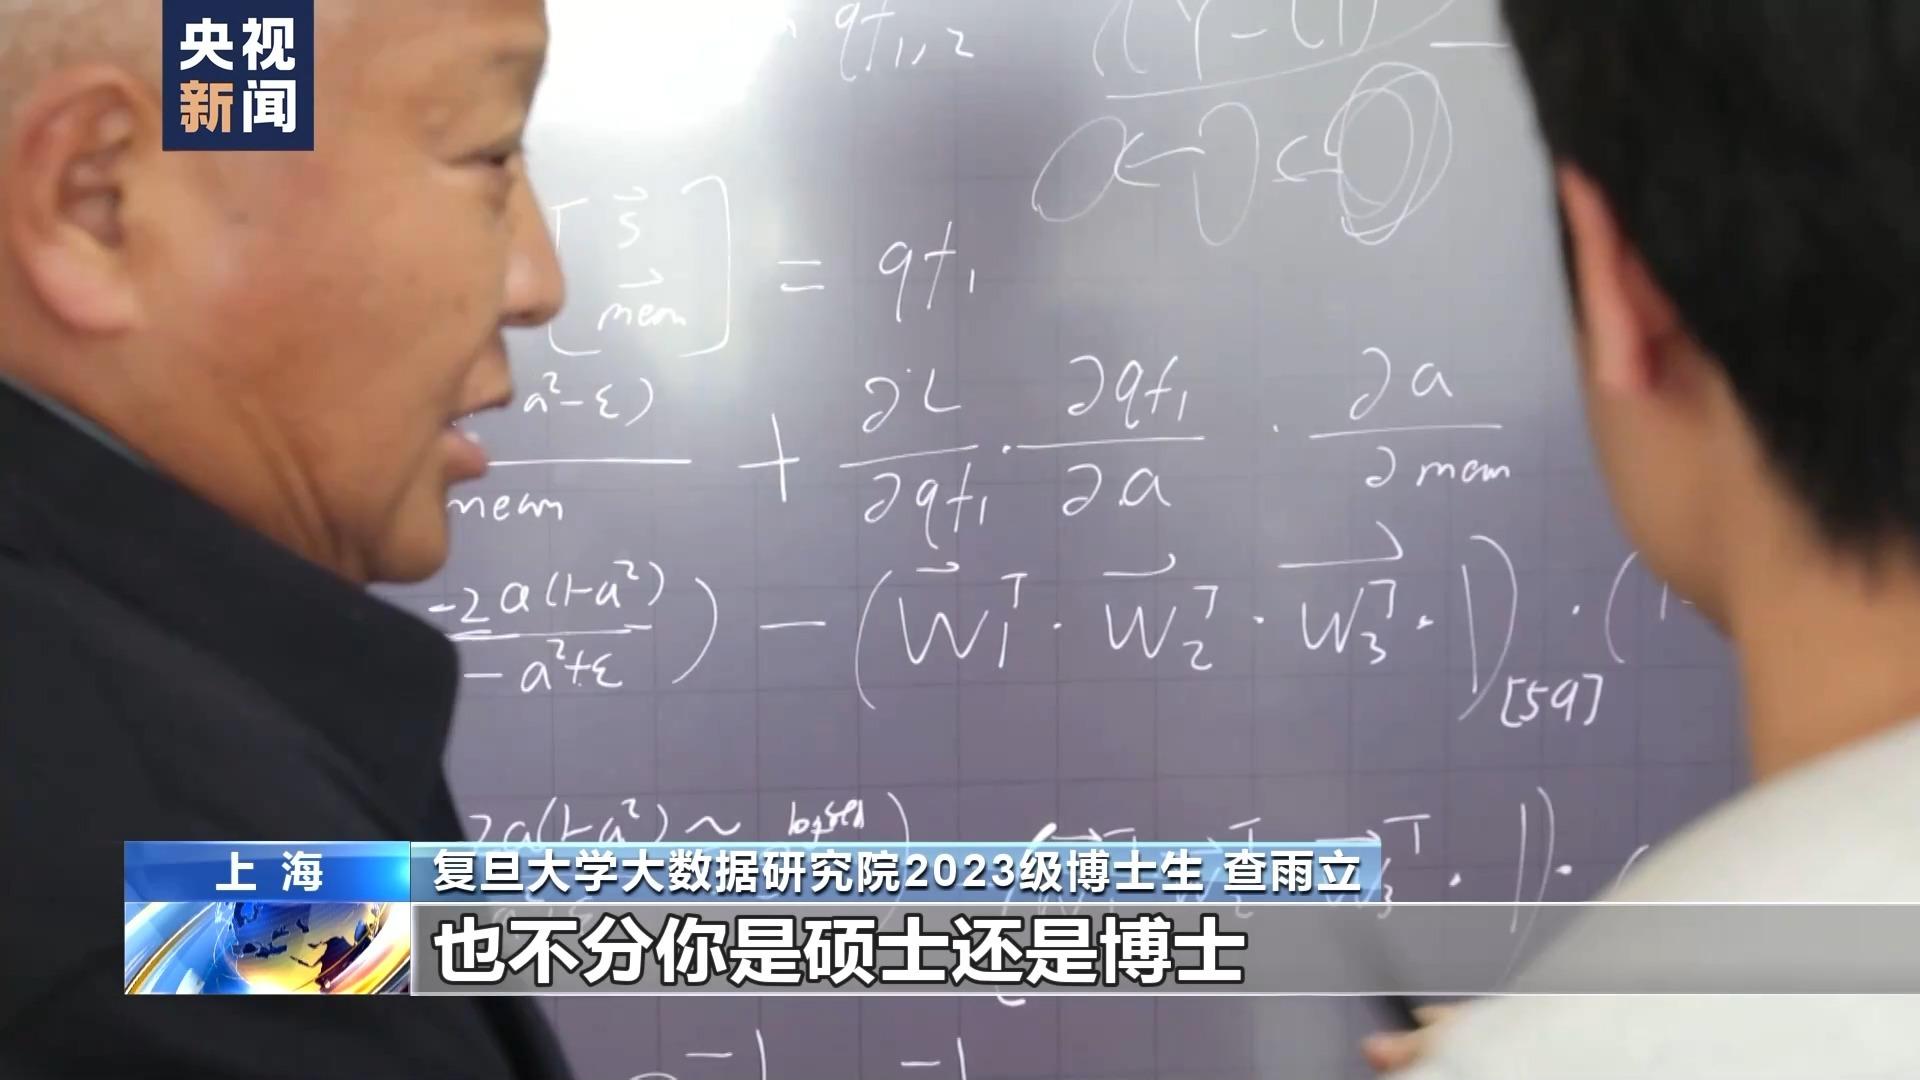 央视
新闻
qf₁,₂
s⃗
mean
= qf₁
a²-ε)
mean
+ ∂L/∂qf₁ · ∂qf₁/∂a · ∂a/∂mean
-2a(1-a²)
-a²+ε
) - (W₁ᵀ · W₂ᵀ · W₃ᵀ · 1)[59] · (1-
2a(1-a²) ~
上海
复旦大学大数据研究院2023级博士生 查雨立
也不分你是硕士还是博士
-1 -1